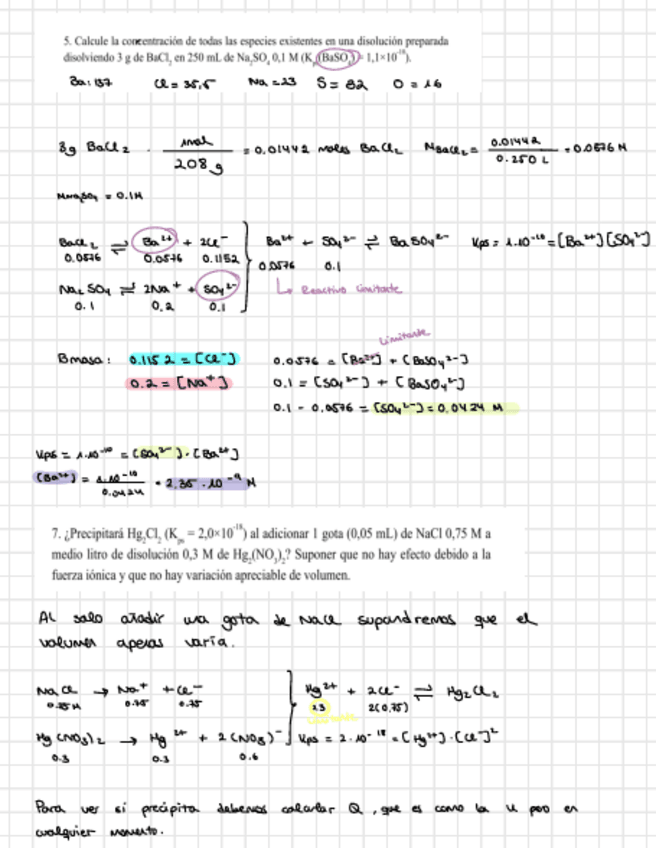 5. Calcule la concentración de todas las especies existentes en una disolución preparada
disolviendo 3 g de BaCl₂ en 250 mL de Na₂SO₄ 0,1 M (K (BaSO₄) = 1,1×10⁻¹⁰).
Ba: 137 Cl = 35,5 Na = 23 S = 32 O = 16
3g BaCl₂ · 1mol / 208 g = 0.01442 moles BaCl₂ M BaCl₂ = 0.01442 / 0.250 L = 0.0576 M
M Na₂SO₄ = 0.1M
BaCl₂ ⇌ Ba²⁺ + 2Cl⁻ Ba²⁺ + SO₄²⁻ ⇌ BaSO₄²⁻ Kps = 1·10⁻¹⁰ = [Ba²⁺][SO₄²⁻]
0.0576 0.0576 0.1152 0.0576 0.1
Na₂SO₄ ⇌ 2Na⁺ + SO₄²⁻ ↳ Reactivo limitante
0.1 0.2 0.1
Limitante
Bmasa: 0.1152 = [Cl⁻] 0.0576 = [Ba²⁺] + [BaSO₄²⁻]
0.2 = [Na⁺] 0.1 = [SO₄²⁻] + [BaSO₄²⁻]
0.1 - 0.0576 = [SO₄²⁻] = 0.0424 M
Kps = 1·10⁻¹⁰ = [SO₄²⁻]·[Ba²⁺]
[Ba²⁺] = 1·10⁻¹⁰ / 0.0424 = 2.35·10⁻⁹ M
7. ¿Precipitará Hg₂Cl₂ (Kps = 2,0×10⁻¹⁸) al adicionar 1 gota (0,05 mL) de NaCl 0,75 M a
medio litro de disolución 0,3 M de Hg₂(NO₃)₂? Suponer que no hay efecto debido a la
fuerza iónica y que no hay variación apreciable de volumen.
Al solo añadir una gota de NaCl supondremos que el
volumen apenas varía.
NaCl → Na⁺ + Cl⁻ Hg²⁺ + 2Cl⁻ ⇌ Hg₂Cl₂
0.75M 0.75 0.75 2(0,75)
Hg(NO₃)₂ → Hg²⁺ + 2(NO₃)⁻ Kps = 2·10⁻¹⁸ = [Hg²⁺]·[Cl⁻]²
0.3 0.3 0.6
Para ver si precipita debemos calcular Q, que es como la K pero en
cualquier momento.